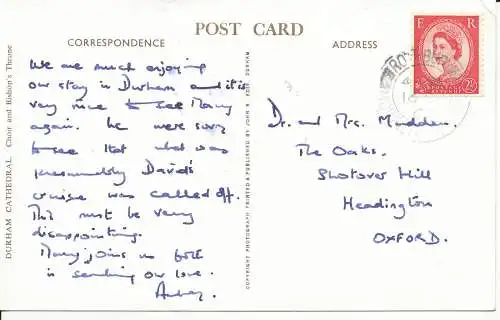 POST CARD
CORRESPONDENCE
ADDRESS
We are much enjoying
our stay in Durham and it is
very nice to see Mary
again. We were sorry
to see that what was
presumably David's
cruise was called off.
This must be very
disappointing.
Mary joins us both
in sending our love.
Aubrey.
DURHAM CATHEDRAL Choir and Bishop's Throne
COPYRIGHT PHOTOGRAPH PRINTED & PUBLISHED BY JOHN H. DURHAM
E R
POSTAGE
REVENUE
2½
Dr. and Mrs. Madden.
The Oaks.
Shotover Hill
Headington
OXFORD.